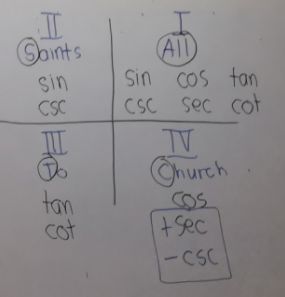 II
Saints
sin
csc
I
All
sin cos tan
csc sec cot
III
To
tan
cot
IV
Church
cos
+sec
-csc